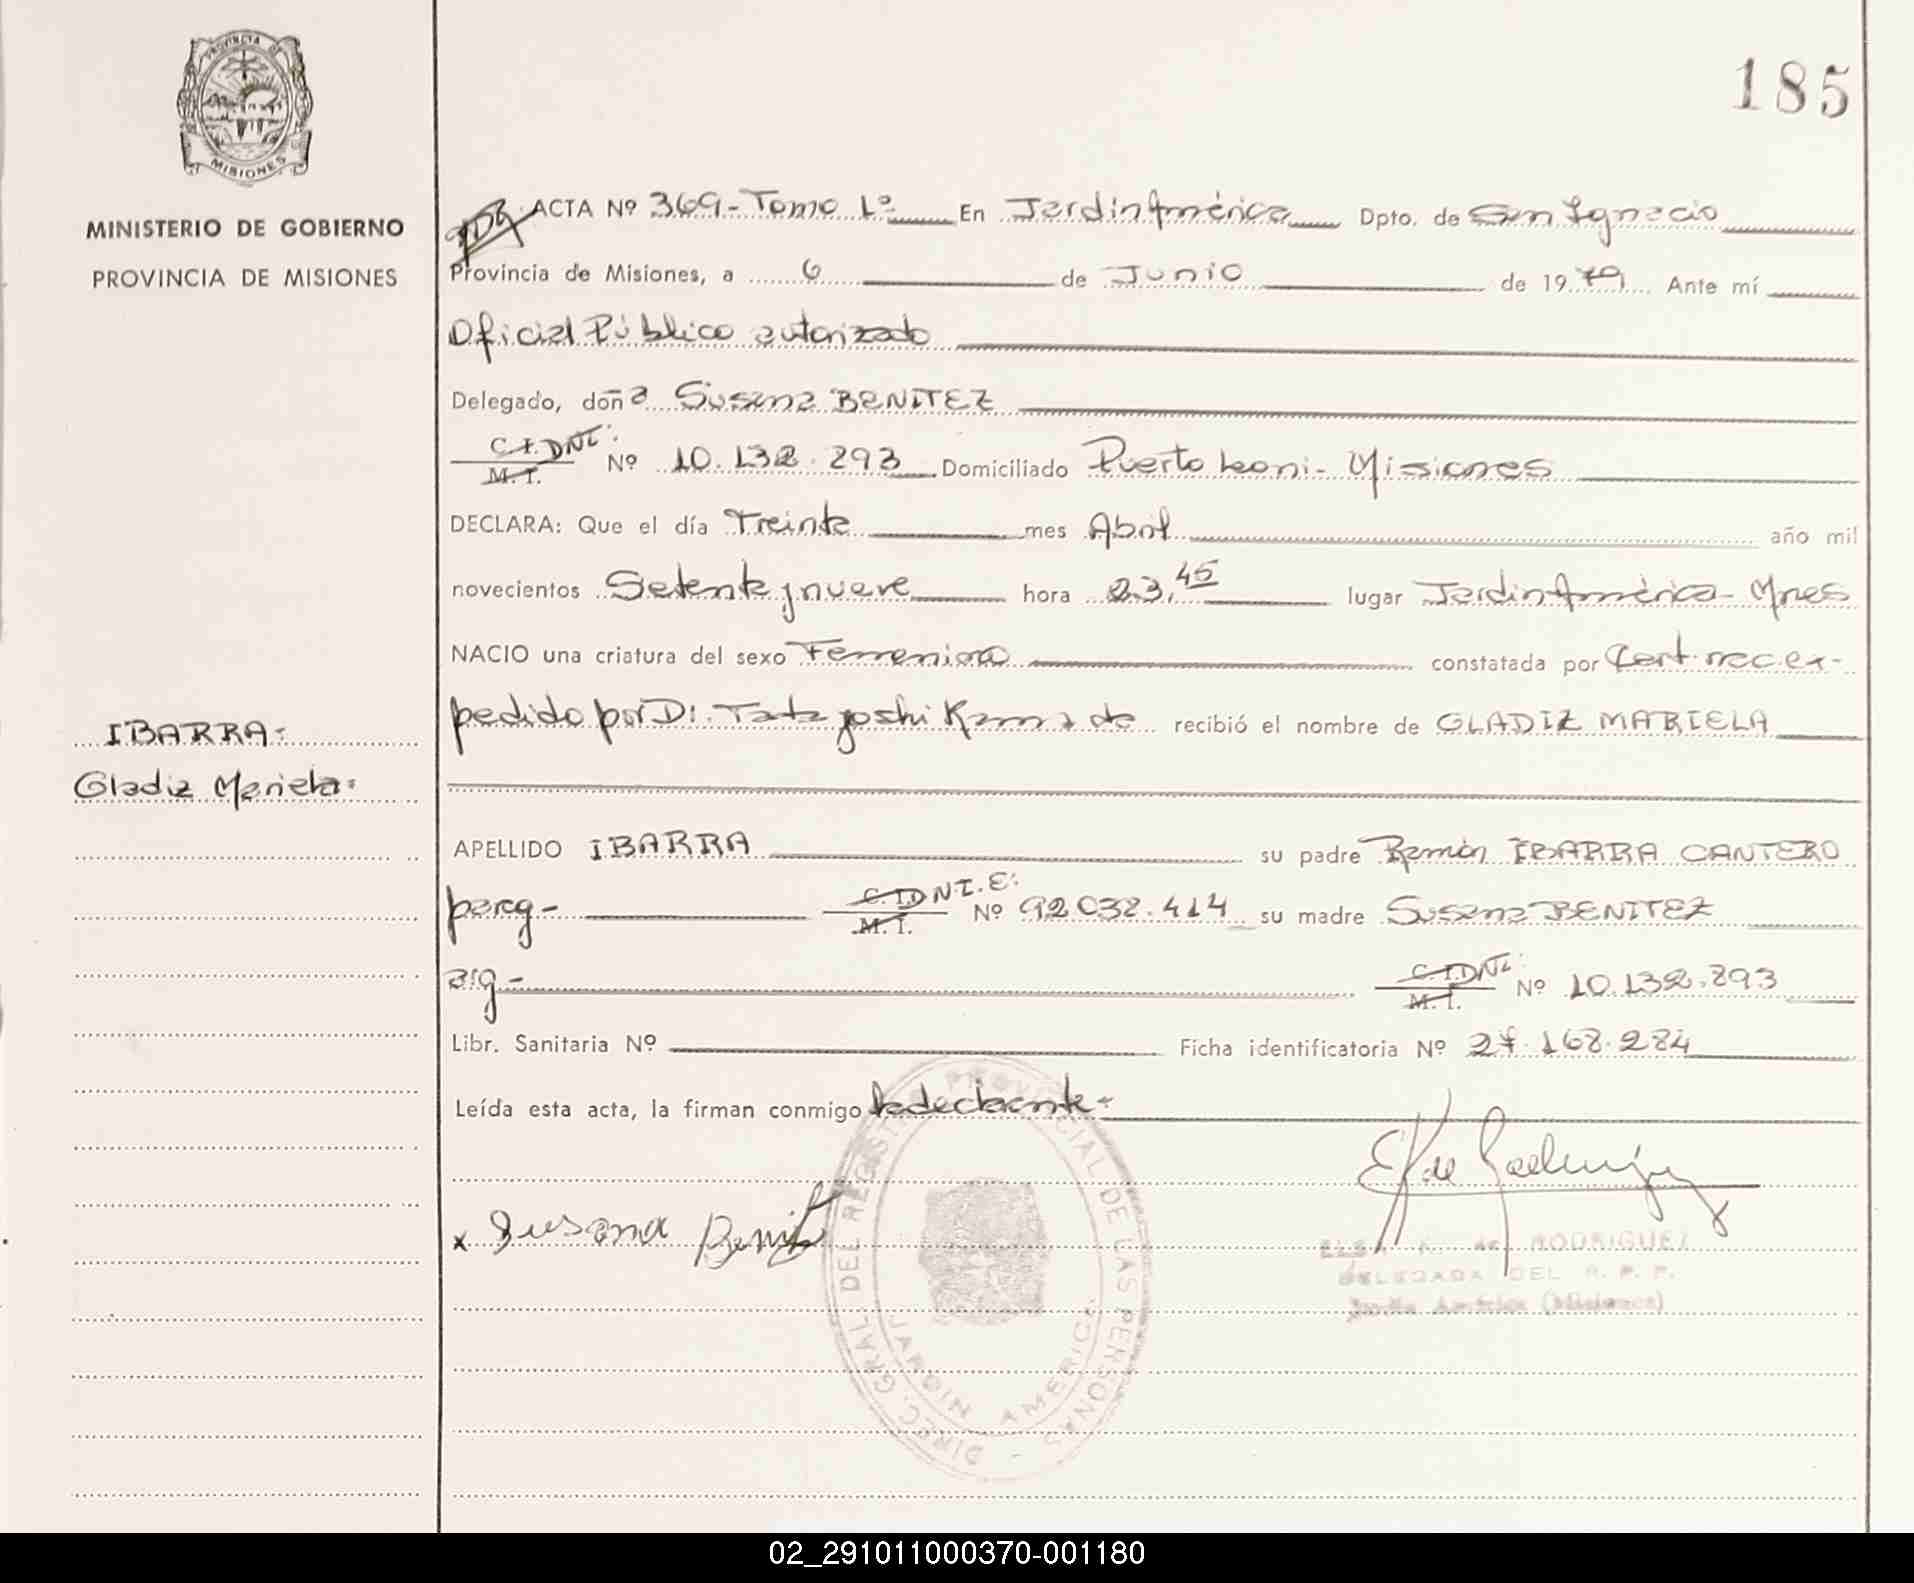 PROVINCIA DE
MISIONES
MINISTERIO DE GOBIERNO
PROVINCIA DE MISIONES
IBARRA:
Gladiz Mariela:
185
ACTA Nº 369-Tomo 1º En Jardin América Dpto. de San Ignacio
Provincia de Misiones, a 6 de Junio de 1979 Ante mí
Oficial Público autorizado
Delegado, doña Susana BENITEZ
C.I. DNI: M.I. Nº 10.132.293 Domiciliado Puerto Leoni - Misiones
DECLARA: Que el día Treinta mes Abril año mil
novecientos Setenta y nueve hora 23,45 lugar Jardin América - Mnes
NACIO una criatura del sexo Femenino constatada por Cert. mec. ex-
pedido por Dr. recibió el nombre de GLADIZ MARIELA
APELLIDO IBARRA su padre Ramón IBARRA CANTERO
parag- C.I. DNI.E: M.I. Nº 92032.414 su madre Susana BENITEZ
arg- C.I. DNI: M.I. Nº 10.132.293
Libr. Sanitaria Nº Ficha identificatoria Nº 27.168.284
Leída esta acta, la firman conmigo la declarante-
x Susana Benitez
DE RODRIGUEZ
DELEGADA DEL R. P. P.
Jardín América (Misiones)
DIREC. GRAL. DEL REGISTRO PROVINCIAL DE LAS PERSONAS -
JARDIN AMERICA
02_291011000370-001180